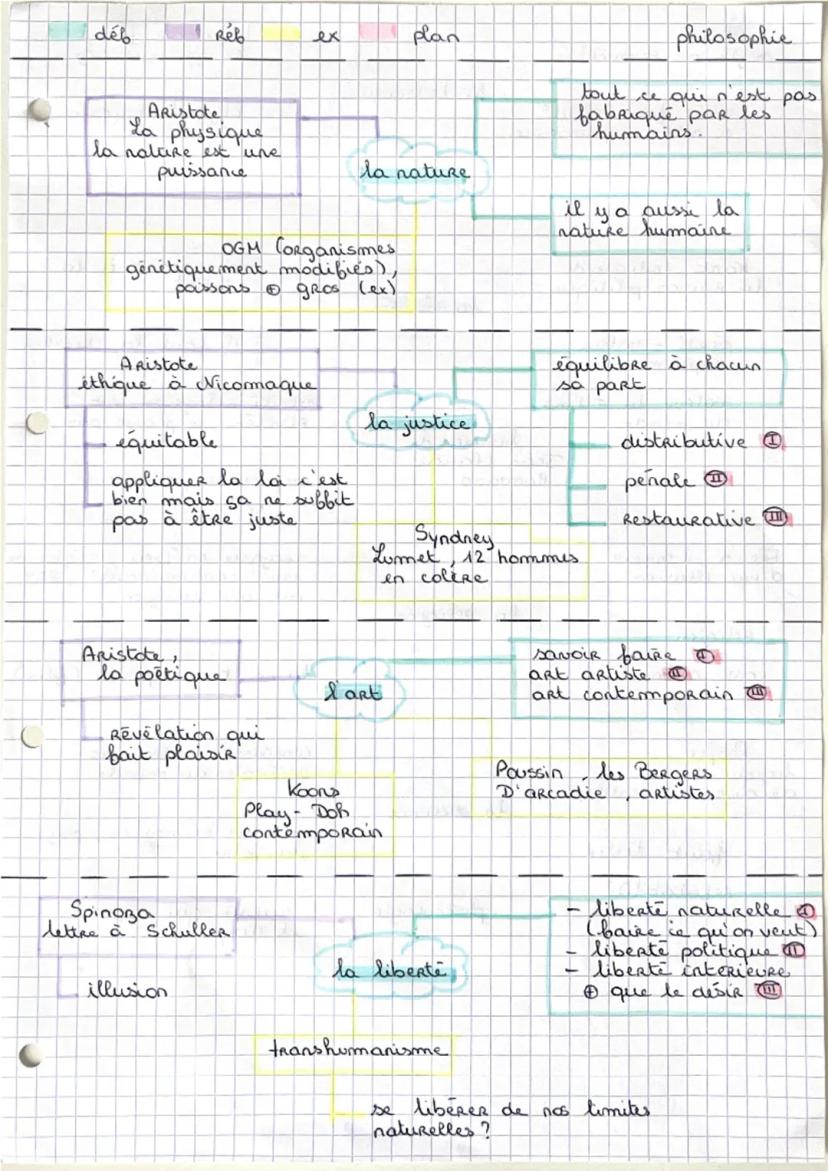 déf réf ex plan philosophie
Aristote
La physique
la nature est une
puissance
la nature
tout ce qui n'est pas
fabriqué par les
humains.
il y a aussi la
nature humaine
OGM (organismes
génétiquement modifiés),
poissons ⊕ gros (ex)
Aristote
éthique à Nicomaque
équitable
appliquer la loi c'est
bien mais ça ne suffit
pas à être juste
la justice
équilibre à chacun
sa part
distributive I
pénale II
restaurative III
Syndney
Lumet, 12 hommes
en colère
Aristote,
la poétique
Révélation qui
fait plaisir
l'art
savoir faire I
art artiste II
art contemporain III
Koons
Play-Doh
contemporain
Poussin, les Bergers
D'arcadie, artistes
Spinoza
lettre à Schuller
illusion
la liberté
- liberté naturelle I
(faire ce qu'on veut)
- liberté politique II
- liberté intérieure
⊕ que le désir III
transhumanisme
se libérer de nos limites
naturelles ?